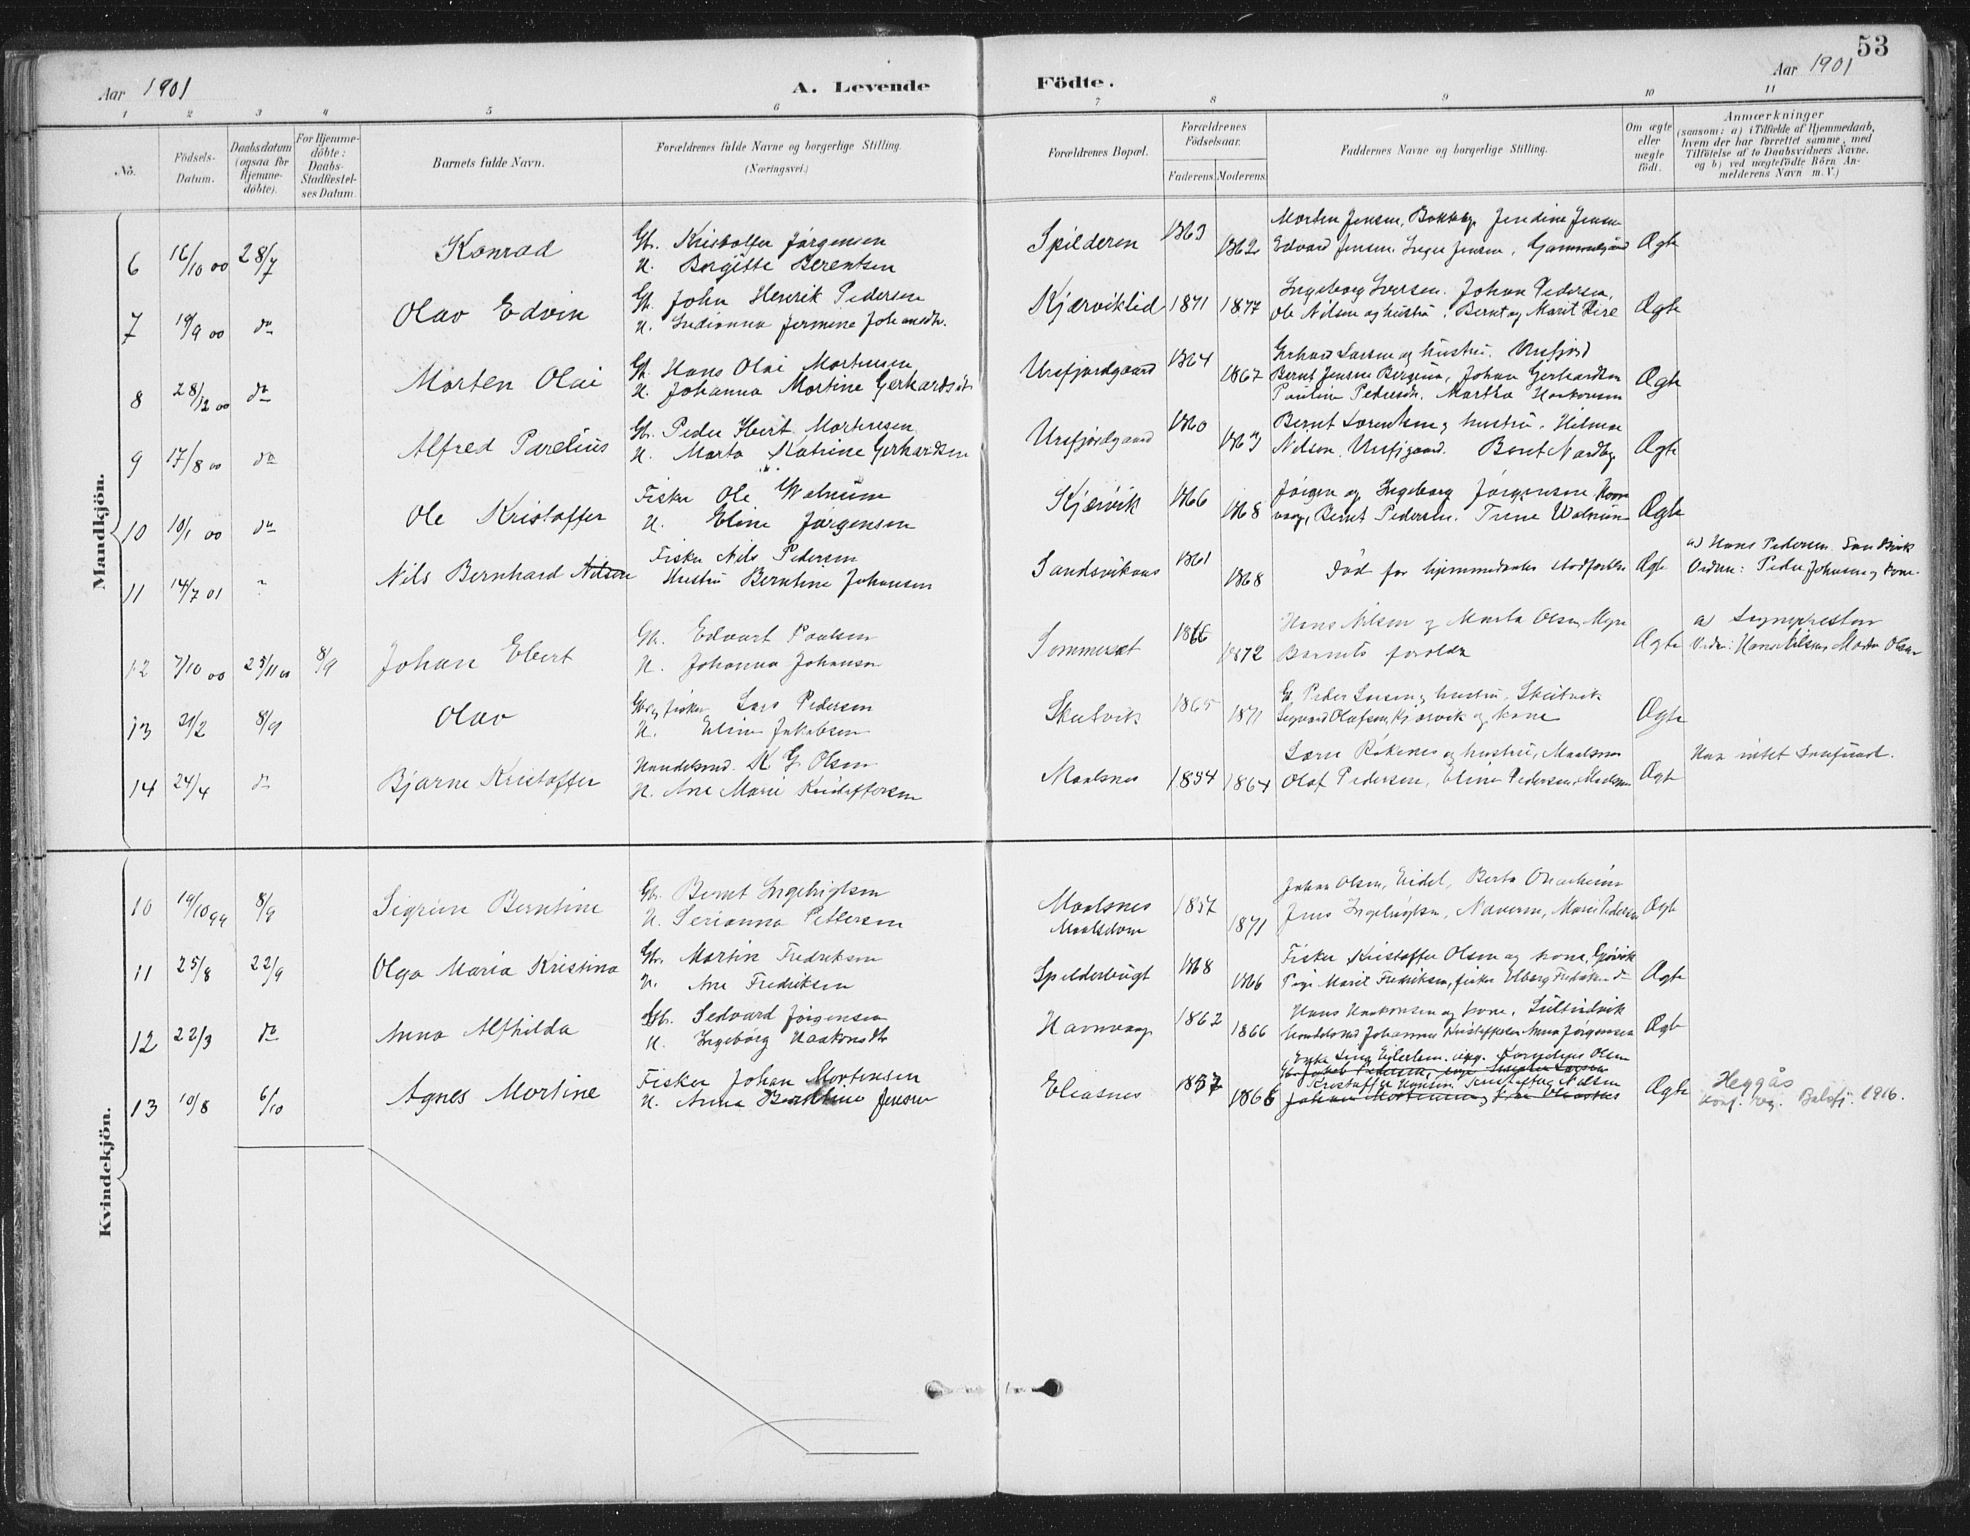 53
Aar 1901
A. Levende
Födte.
Aar 1901
1 2 3 4 5 6 7 8 9 10 11
No.
Födsels-Datum.
Daabsdatum (ogsaa for Hjemme-döbte).
For Hjemme-döbte: Daabs-Stadfæstel-ses Datum.
Barnets fulde Navn.
Forældrenes fulde Navne og borgerlige Stilling.
(Næringsvei.)
Forældrenes Bopæl.
Forældrenes Födselsaar.
Faderens. Moderens.
Faddernes Navne og borgerlige Stilling.
Om ægte eller uægte födt.
Anmærkninger
(saasom: a) i Tilfælde af Hjemmedaab,
hvem der har forrettet samme, med
Tilföielse af to Daabsvidners Navne.
og b) ved uægtefödte Börn An-
melderens Navn m. V.)
Mandkjön.
6 16/10 00 28/7 Konrad
Gbr. Kristoffer Jørgensen
H. Borgitte Berentsen
Spilderen 1863 1862
Morten Jensen, Jendine Jensen
Edvard Jensen, Inger Jensen, Ægte
7 19/9 00 do Olav Edvin
Gb. John Henrik Pedersen
H. Indianna Jermine Johansdtr.
Kjærviklid 1871 1877
Ingeborg Iversen. Johan Pedersen,
Ole Nilsen og hustru. Bernt og Marit Lire Ægte
8 28/12 00 do Morten Olai
Gb. Hans Olai Mortensen
H. Johanna Mortine Gerhardsdtr
Ursfjordgaard 1864 1867
Gerhard Larsen og hustru. Ursfjord
Bernt Jensen Johan Gerhardsen
Pauline Pedersdtr. Martha Haakonsen Ægte
9 17/8 00 do Alfred Parelius
Gb. Peder Hbert Mortensen
H. Marta Katrine Gerhardsen
Ursfjordgaard 1860 1863
Bernt Lorentsen og hustru. Hilmar
Nilsen, Bernt Nordby Ægte
10 10/1 00 do Ole Kristoffer
Fisker Ole Walnum
H. Eline Jørgensen
Kjærvik 1866 1868
Jørgen og Ingeborg Jørgensen Havn
vaag, Bernt Pedersen. Trine Walnum Ægte
11 14/7 01 Nils Bernhard Nilsen
Fisker Nils Pedersen
Hustru Berntine Johansen
Sandsvikans 1861 1868
Død før hjemmedaabs stadfæstelse Ægte
a) Hans Pedersen
Vidne: Peder Johnsen og kone.
12 7/10 00 25/11 00 8/9 Johan Ebert
Gb. Edvart Paulsen
H. Johanna Johansen
Sommeset 1866 1872
Hans Nilsen og Marta Olsen, Myre
Barnets forældre Ægte
a) Sogneprestens
Vidne: Hans Nilsen, Marta Olsen
13 21/2 8/9 Olav
Gb og fisker Lars Pedersen
H. Eline Jakobsen
Skutvik 1865 1871
Gb. Peder Larsen og hustru. Skutvik
Sigvard Olafsen, Kjærvik og kone Ægte
14 24/4 do Bjarne Kristoffer
Handelsmd. K G. Olsen
H. Ane Marie Kristoffersen
Maalsnes 1854 1864
Søren Røkenes og hustru, Maalsnes
Olaf Pedersen, Eline Pedersen, Maalsnes Ægte
Har intet
Kvindekjön.
10 19/10 99 8/9 Sigrun Berntine
Gb. Bernt Ingebrigtsen
H. Serianna Pettersen
Maalsnes
Maalselven 1857 1871
Johan Olsen, Eidet, Berta
Jens Ingebrigtsen, Naveren, Marie Pedersen Ægte
11 25/8 22/9 Olga Maria Kristina
Gbr. Martin Fredriksen
H. Ane Fredriksen
Spilderbugt 1868 1866
Fisker Kristoffer Olsen og kone, Gjøvik
Pige Marit Fredriksen, fisker Elberg Fredriksen do Ægte
12 22/3 do Anna Alfhilda
Gb. Sedvard Jørgensen
H. Ingeborg Haakonsdtr
Havnvaag 1862 1866
Hans Haakonsen og kone,
Handelsmd Johannes Kristoffersen Anna Jørgensen Ægte
13 10/8 6/10 Agnes Mortine
Fisker Johan Mortensen
H. Anna Jensen
Eliasnes 1857 1866
Enke Lina Kornelius Olsen
Gb. Jakob Pedersen, Larsen
Kristoffer Hansen Kristoffer Nilsen
Johan Mortensen og kone Eliasnes Ægte
Heggås
Konf. reg. Balsfj. 1916.